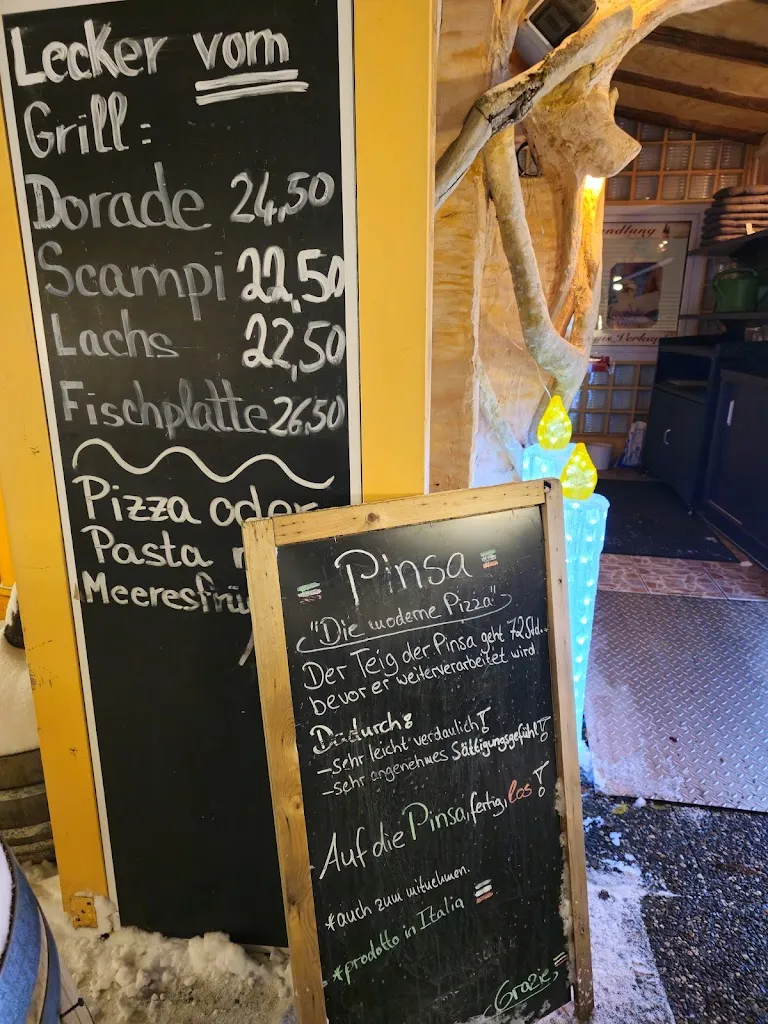 Lecker vom
Grill:
Dorade 24,50
Scampi 22,50
Lachs 22,50
Fischplatte 26,50
Pizza oder
Pasta
Meeresfrü
Pinsa
"Die moderne Pizza"
Der Teig der Pinsa geht 72 Std..
bevor er weiterverarbeitet wird
Dadurch:
-sehr leicht verdaulich!
-sehr angenehmes Sättigungsgefühl!
Auf die Pinsa, fertig, los!
*auch zum mitnehmen.
*prodotto in Italia
Grazie
ndlung